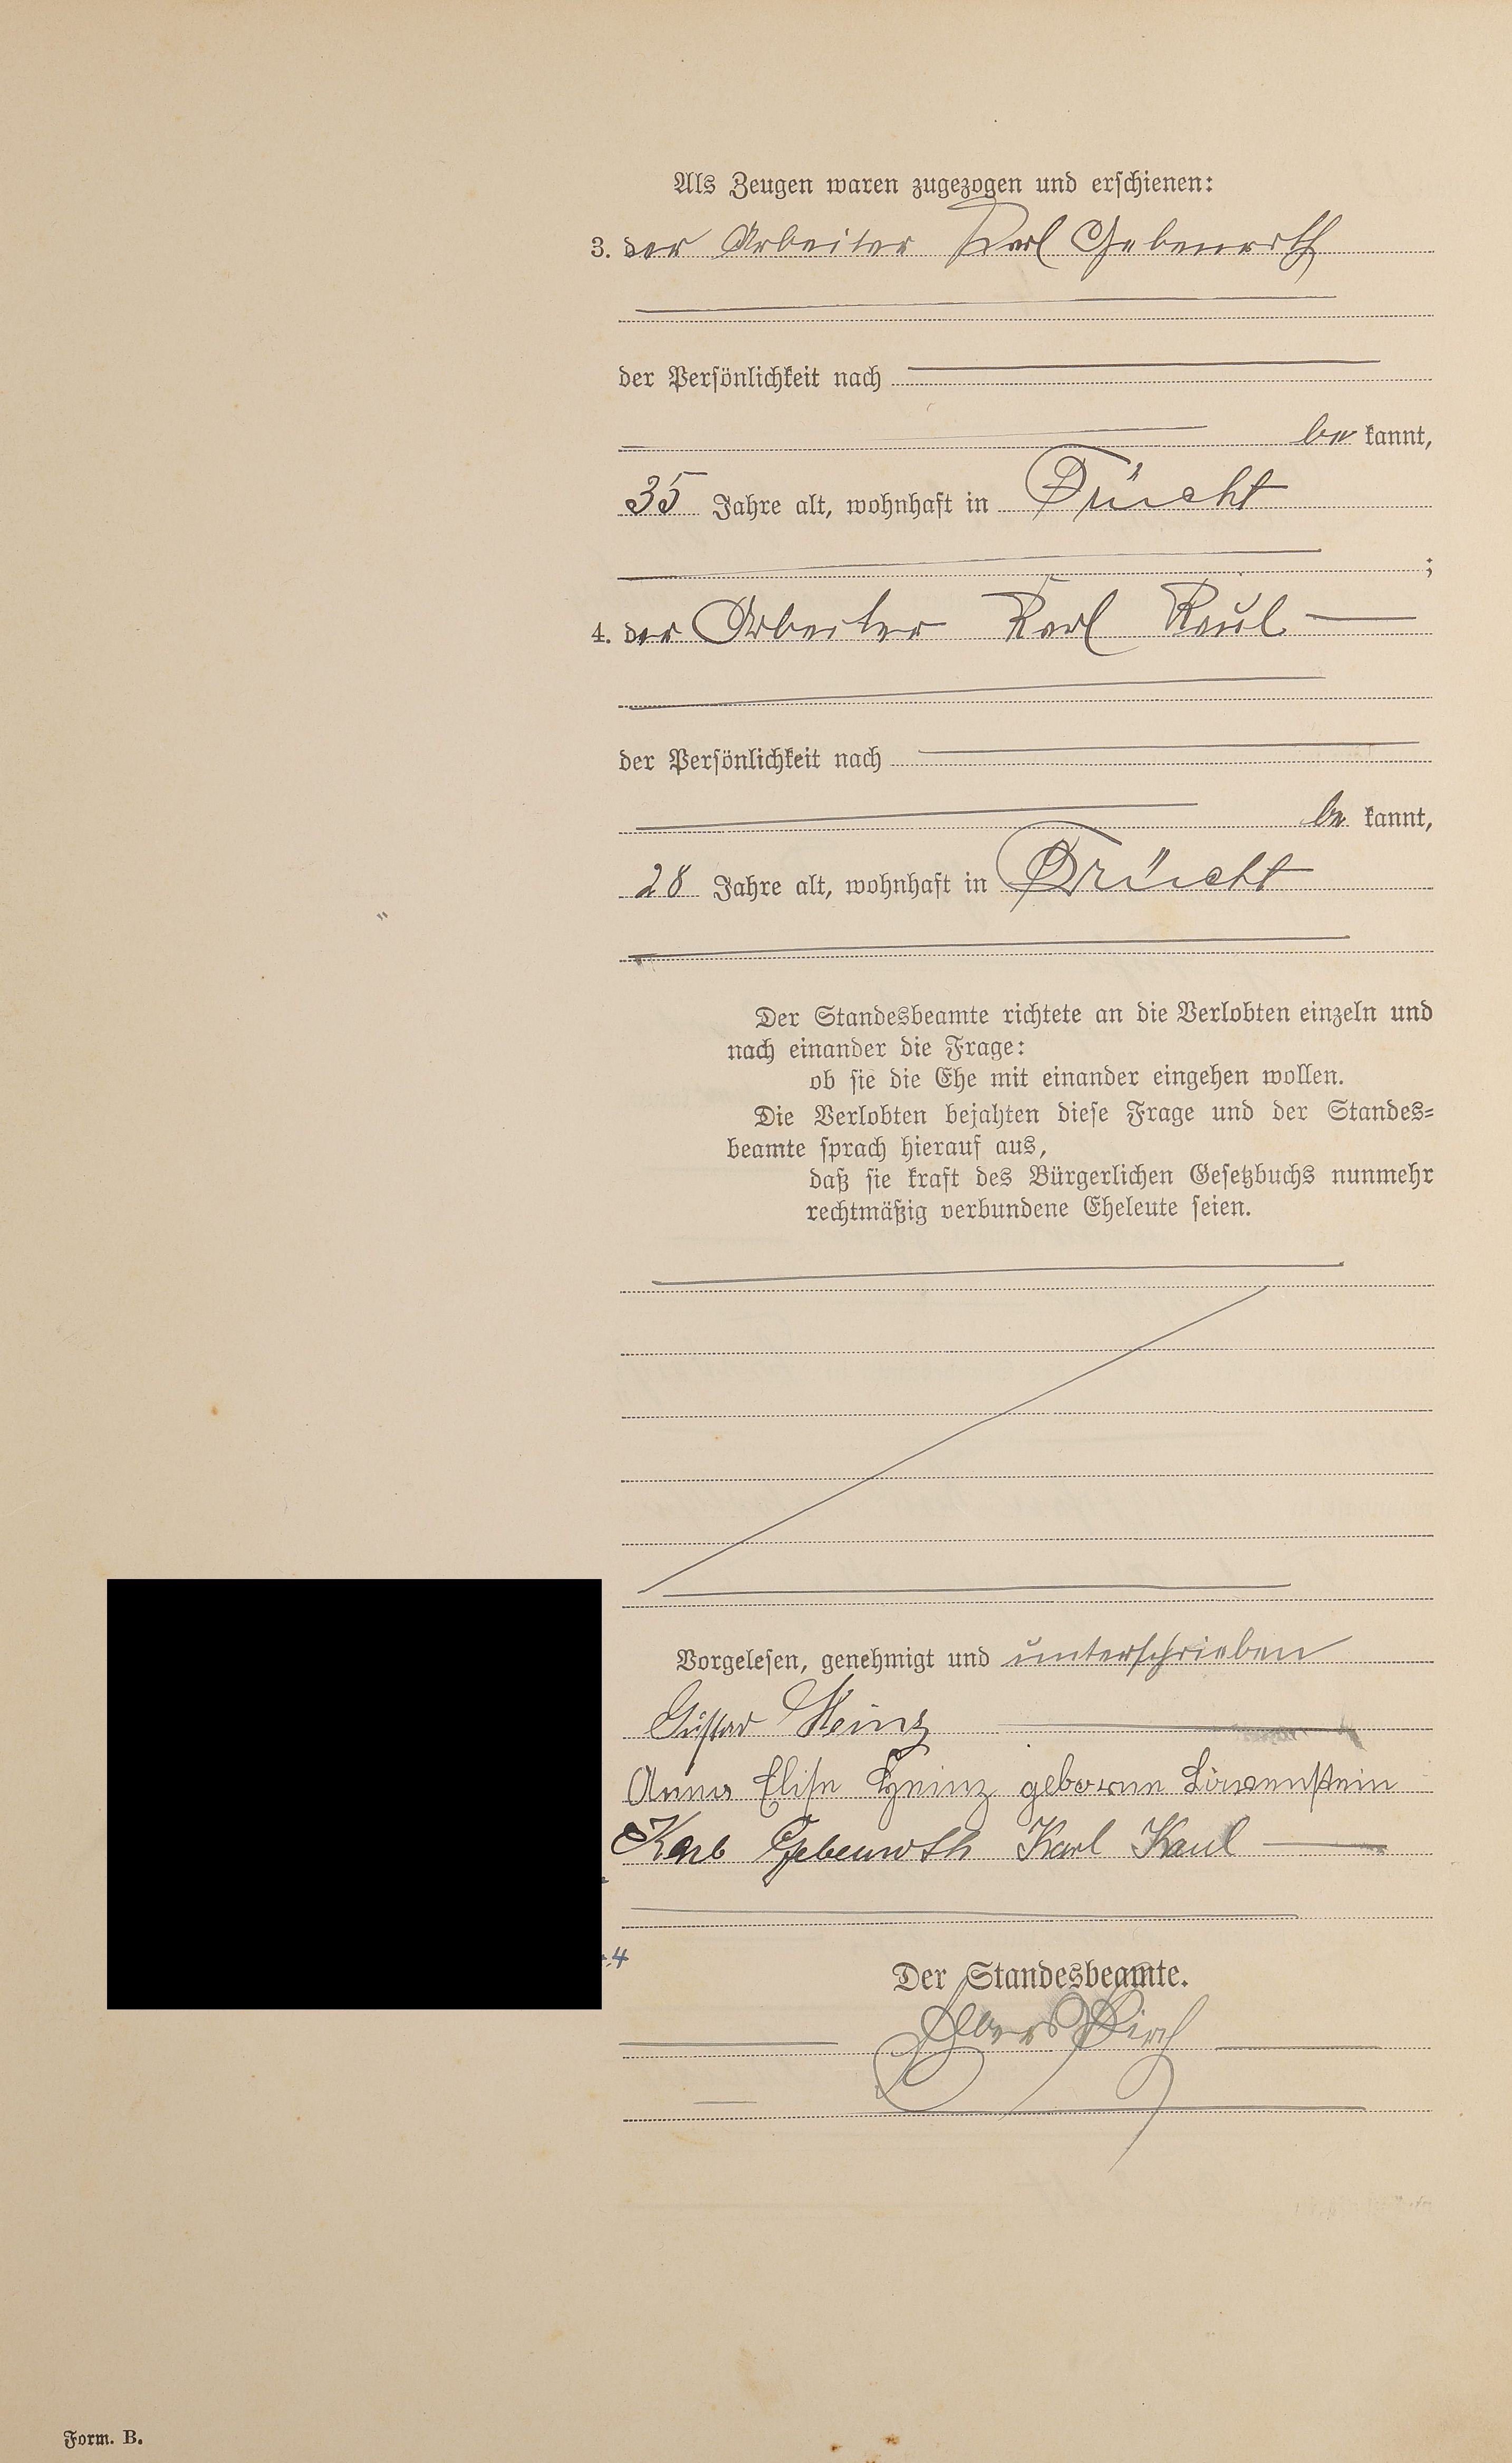 Als Zeugen waren zugezogen und erschienen:
3. der Arbeiter Karl Gebenroth
der Persönlichkeit nach
be kannt,
35 Jahre alt, wohnhaft in Frücht
;
4. der Arbeiter Karl Kaul
der Persönlichkeit nach
be kannt,
28 Jahre alt, wohnhaft in Frücht
Der Standesbeamte richtete an die Verlobten einzeln und
nach einander die Frage:
ob sie die Ehe mit einander eingehen wollen.
Die Verlobten bejahten diese Frage und der Standes=
beamte sprach hierauf aus,
daß sie kraft des Bürgerlichen Gesetzbuchs nunmehr
rechtmäßig verbundene Eheleute seien.
Vorgelesen, genehmigt und unterschrieben
Gustav Heinz
Anna Elise Heinz geborene Löwenstein
Karl Gebenroth Karl Kaul
Der Standesbeamte.
Form. B.